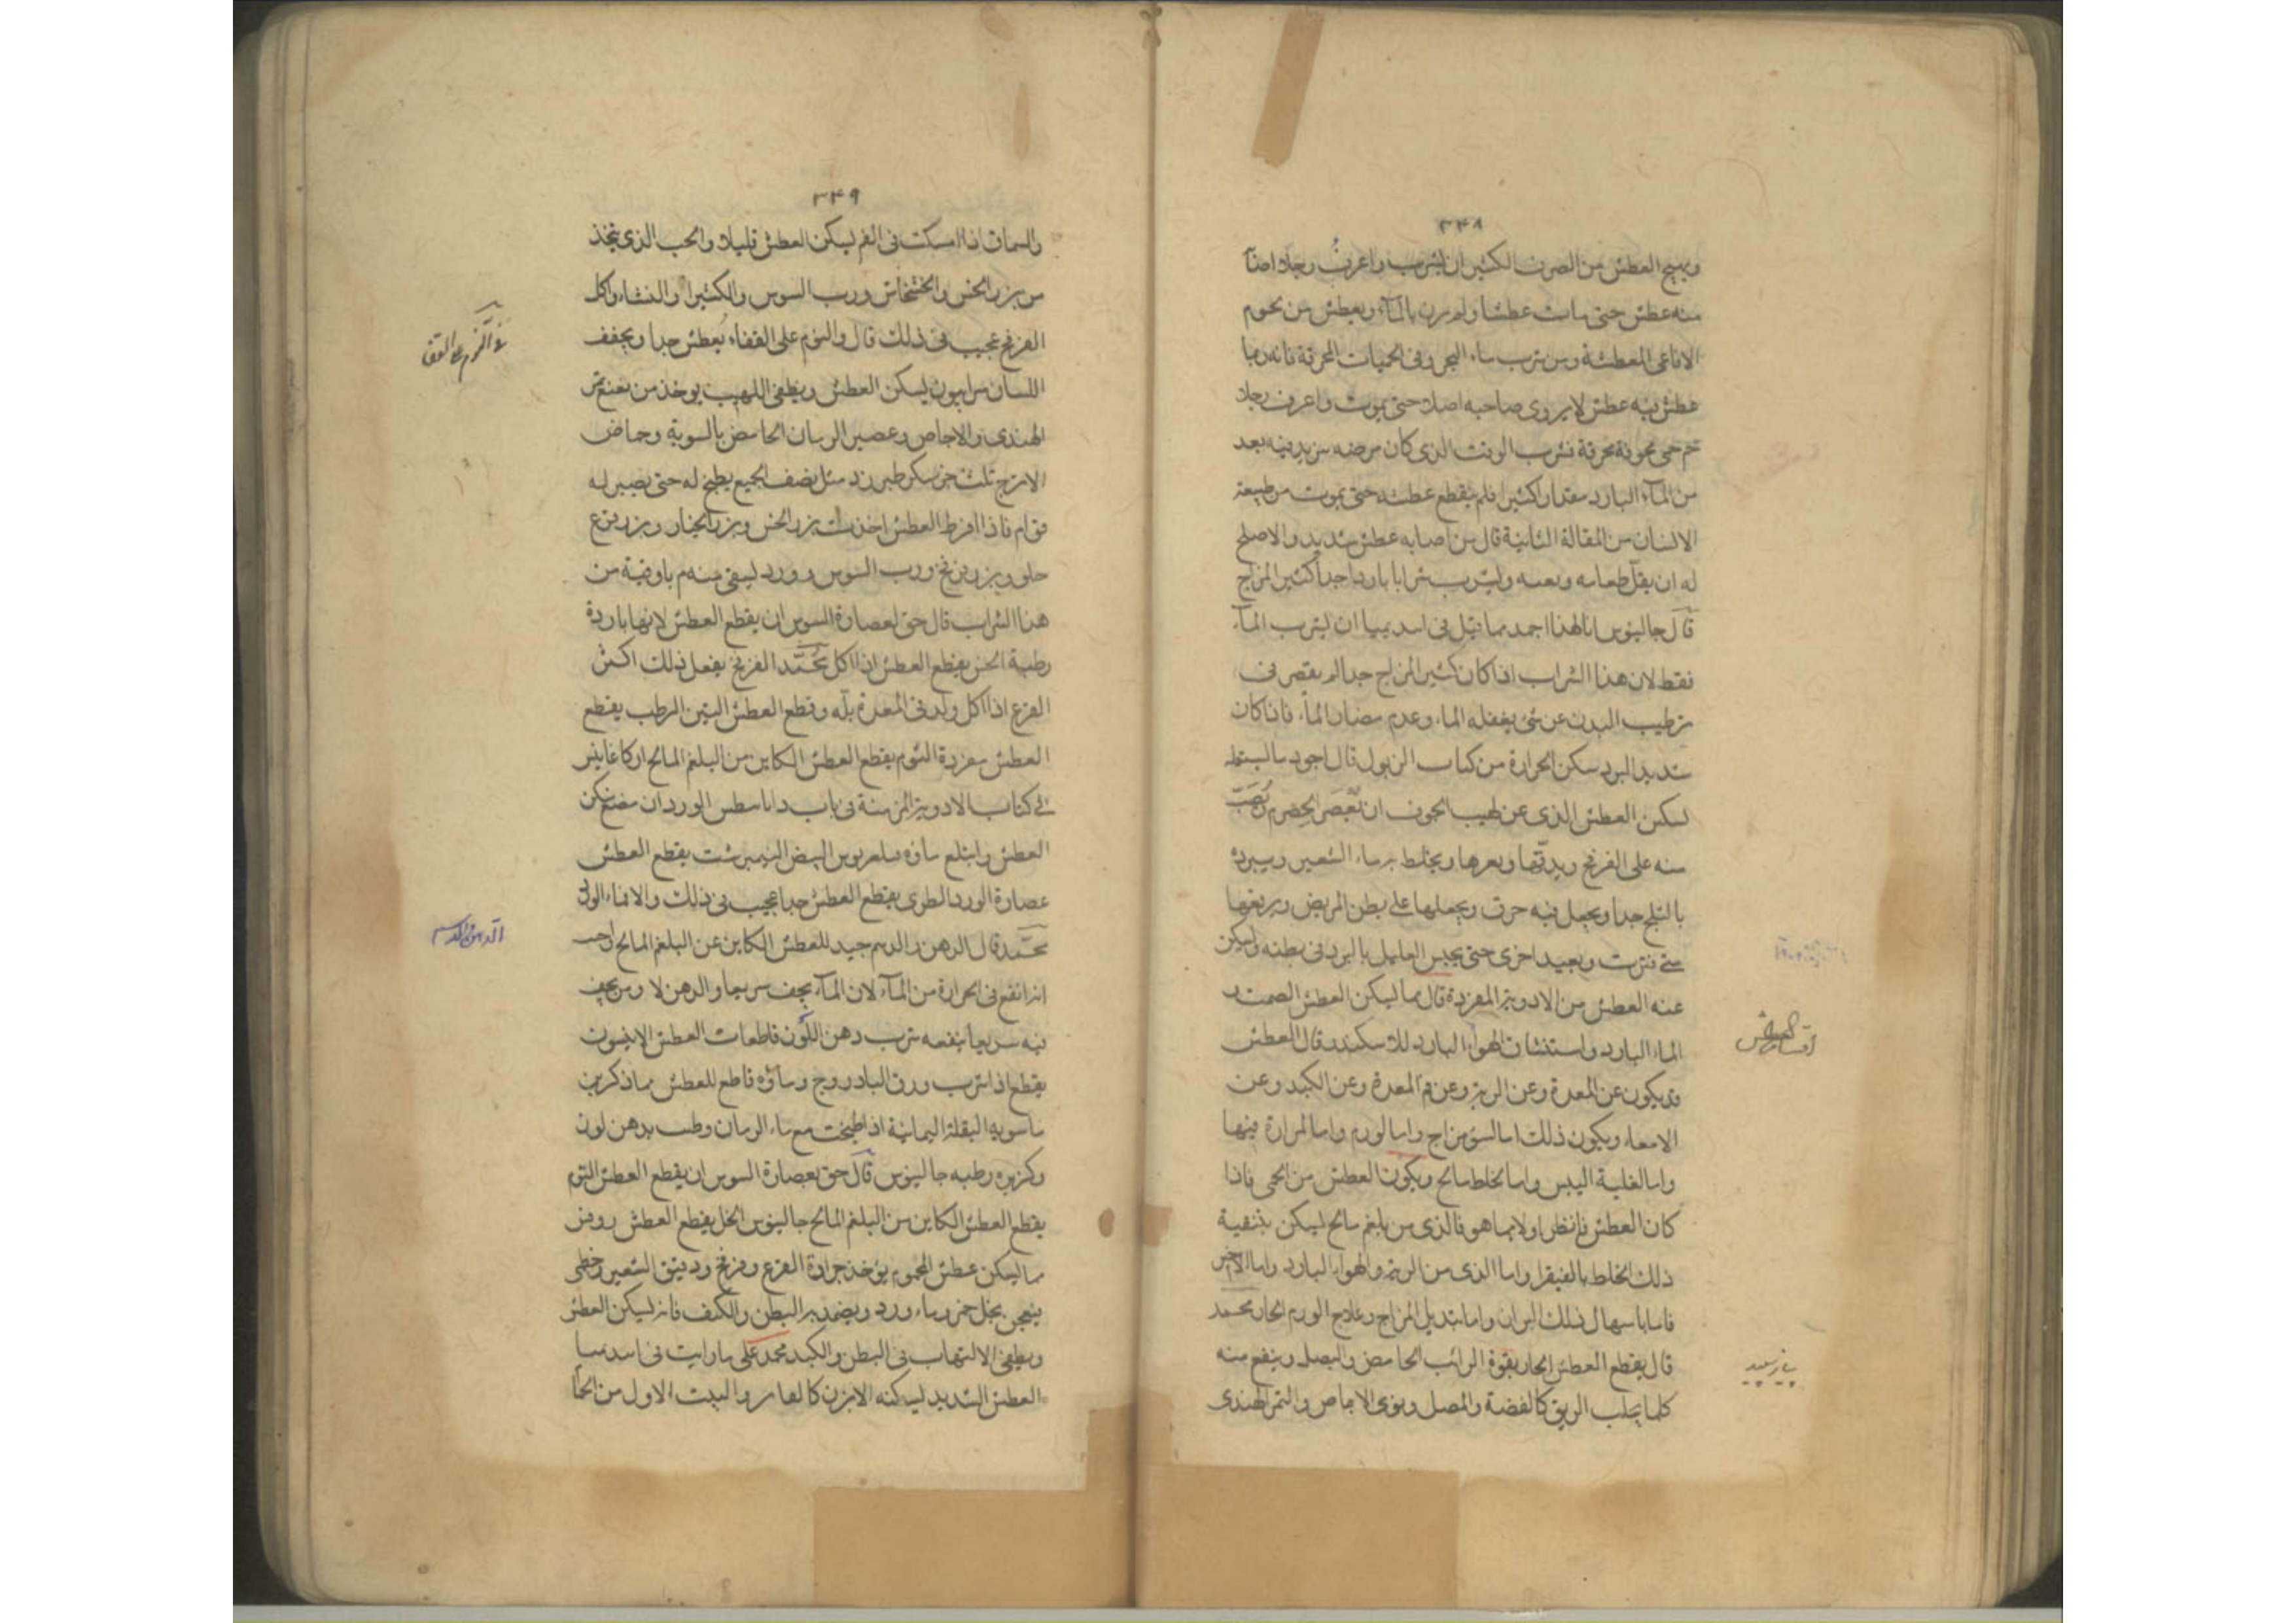 ٣٤٨
ويهيج العطش من الصرف الكثير ان يشرب واعرف رجلا اصابه
منه عطش حتى مات عطشا ولم يرو بالماء ويعطش من لحوم
الافاعى المعطشة ومن شرب ماء البحر وفى الحميات المحرقة فانه ربما
عطش فيه عطش لا يروى صاحبه اصلا حتى يموت واعرف رجلا
حم حمى محرقة فشرب الوقت الذى كان مرضه يزيد فيه بعد
من الماء البارد مقدارا كثيرا فلم ينقطع عطشه حتى يموت من طبيعة
الانسان من المقالة الثانية قال من اصابه عطش شديد والاصلح
له ان يقل طعامه وتعبه وليشرب شرابا باردا جدا كثير المزاج
قال جالينوس انا لهذا احمد مما قيل فى اسديميا ان يشرب الماء
فقط لان هذا الشراب اذا كان كثير المزاج جدا لم يقصر فى
ترطيب البدن عن شئ يفعله الماء وعدم مضار الماء فاذا كان
شديد البرد سكن الحرارة من كتاب الذبول قال اجود ما
لسكن العطش الذى عن لهيب الجوف ان تعصر الحصرم وتصب
منه على الفرفخ ويدقها ويخلط به ماء الشعير ويبرد
بالثلج جدا ويجعل فيه خرق ويجعلها على بطن المريض ويرفعها
متى فترت ويعيد اخرى حتى يحس العليل بالبرد فى بطنه وليسكن
عنه العطش من الادوية المفردة قال مما يسكن العطش الصمت و
الماء البارد واستنشاق الهواء البارد للاسكندر قال العطش
قد يكون عن المعدة وعن الرية وعن فم المعدة وعن الكبد وعن
الامعاء ويكون ذلك اما لسوء مزاج واما لورم واما لمرارة فيها
واما لغلبة اليبس واما لخلط مالح ويكون العطش من الحمى فاذا
كان العطش فانظر اولا مما هو فالذى من بلغم مالح ليسكن بتنقية
ذلك الخلط بالفيقرا واما الذى من الرية والهواء البارد واما الآخر
فاما باسهال ذلك المران واما بتبديل المزاج وعلاج الورم الحار محمد
قال يقطع العطش الحار بقوة الرائب الحامض والبصل وينفع منه
كلما يجلب الريق كالفضة والمصل ونوى الاجاص والتمر الهندى
اقسام العطش
٣٤٩
والسماق اذا امسكت فى الفم ليسكن العطش قليلا والحب الذى يتخذ
من بزر الخس والخشخاش ورب السوس والكثيرا والنشاء واكل
الفرفخ عجيب فى ذلك قال والنوم على القفاء يعطش جدا ويجفف
اللسان سرابيون ليسكن العطش ويطفى اللهيب يوخذ من نقيع تمر
الهندى والاجاص وعصير الرمان الحامض بالسوية وحماض
الاترج ثلث جزء سكر طبرزد مثل نصف الجميع يطبخ له حتى يصير له
قوام فاذا افرط العطش اخذت بزر الخس وبزر الخيار وبزر قرع
حلو وبزر فرفخ ورب السوس وورد ليسقى منهم باوقية من
هذا الشراب قال حق لعصارة السوس ان يقطع العطش لانها باردة
رطبة الخس يقطع العطش اذا اكل محمد الفرفخ يفعل ذلك اكثر
القرع اذا اكل ولد فى المعدة بلة وقطع العطش التين الرطب يقطع
العطش مفردة الثوم يقطع العطش الكاين من البلغم المالح
فى كتاب الادوية المزمنة فى باب الورد ان مضغ سكن
العطش وابتلع ماؤه البيض النيمبرشت يقطع العطش
عصارة الورد الطرى يقطع العطش جدا عجيب فى ذلك
محمد قال الدهن والدسم جيد للعطش الكاين عن البلغم المالح
انه انفع فى الحرارة من الماء لان الماء يجف سريعا والدهن لا ومن يجف
فيه سريعا ينفعه شرب دهن اللوز قاطعات العطش الانيسون
يقطع اذا شرب ورق البادروج وماؤه قاطع للعطش مما ذكر ابن
ماسويه البقلة اليمانية اذا طبخت مع ماء الرمان وطبت بدهن لوز
وكزبره رطبه جالينوس قال حق بعصارة السوس ان يقطع العطش الثوم
يقطع العطش الكاين من البلغم المالح جالينوس الخل يقطع العطش روفس
ما ليسكن عطش المحموم يوخذ جرادة القرع وفرفخ ودقيق الشعير وخطمى
يعجن بخل خمر وماء ورد ويضمد به البطن والكتف فانه ليسكن العطش
ويطفى الالتهاب فى البطن والكبد محمد على ما رايت فى
العطش الشديد ليسكنه الابزن والبيت الاول من الحمام
فى النوم على القفا
الدهن والدسم